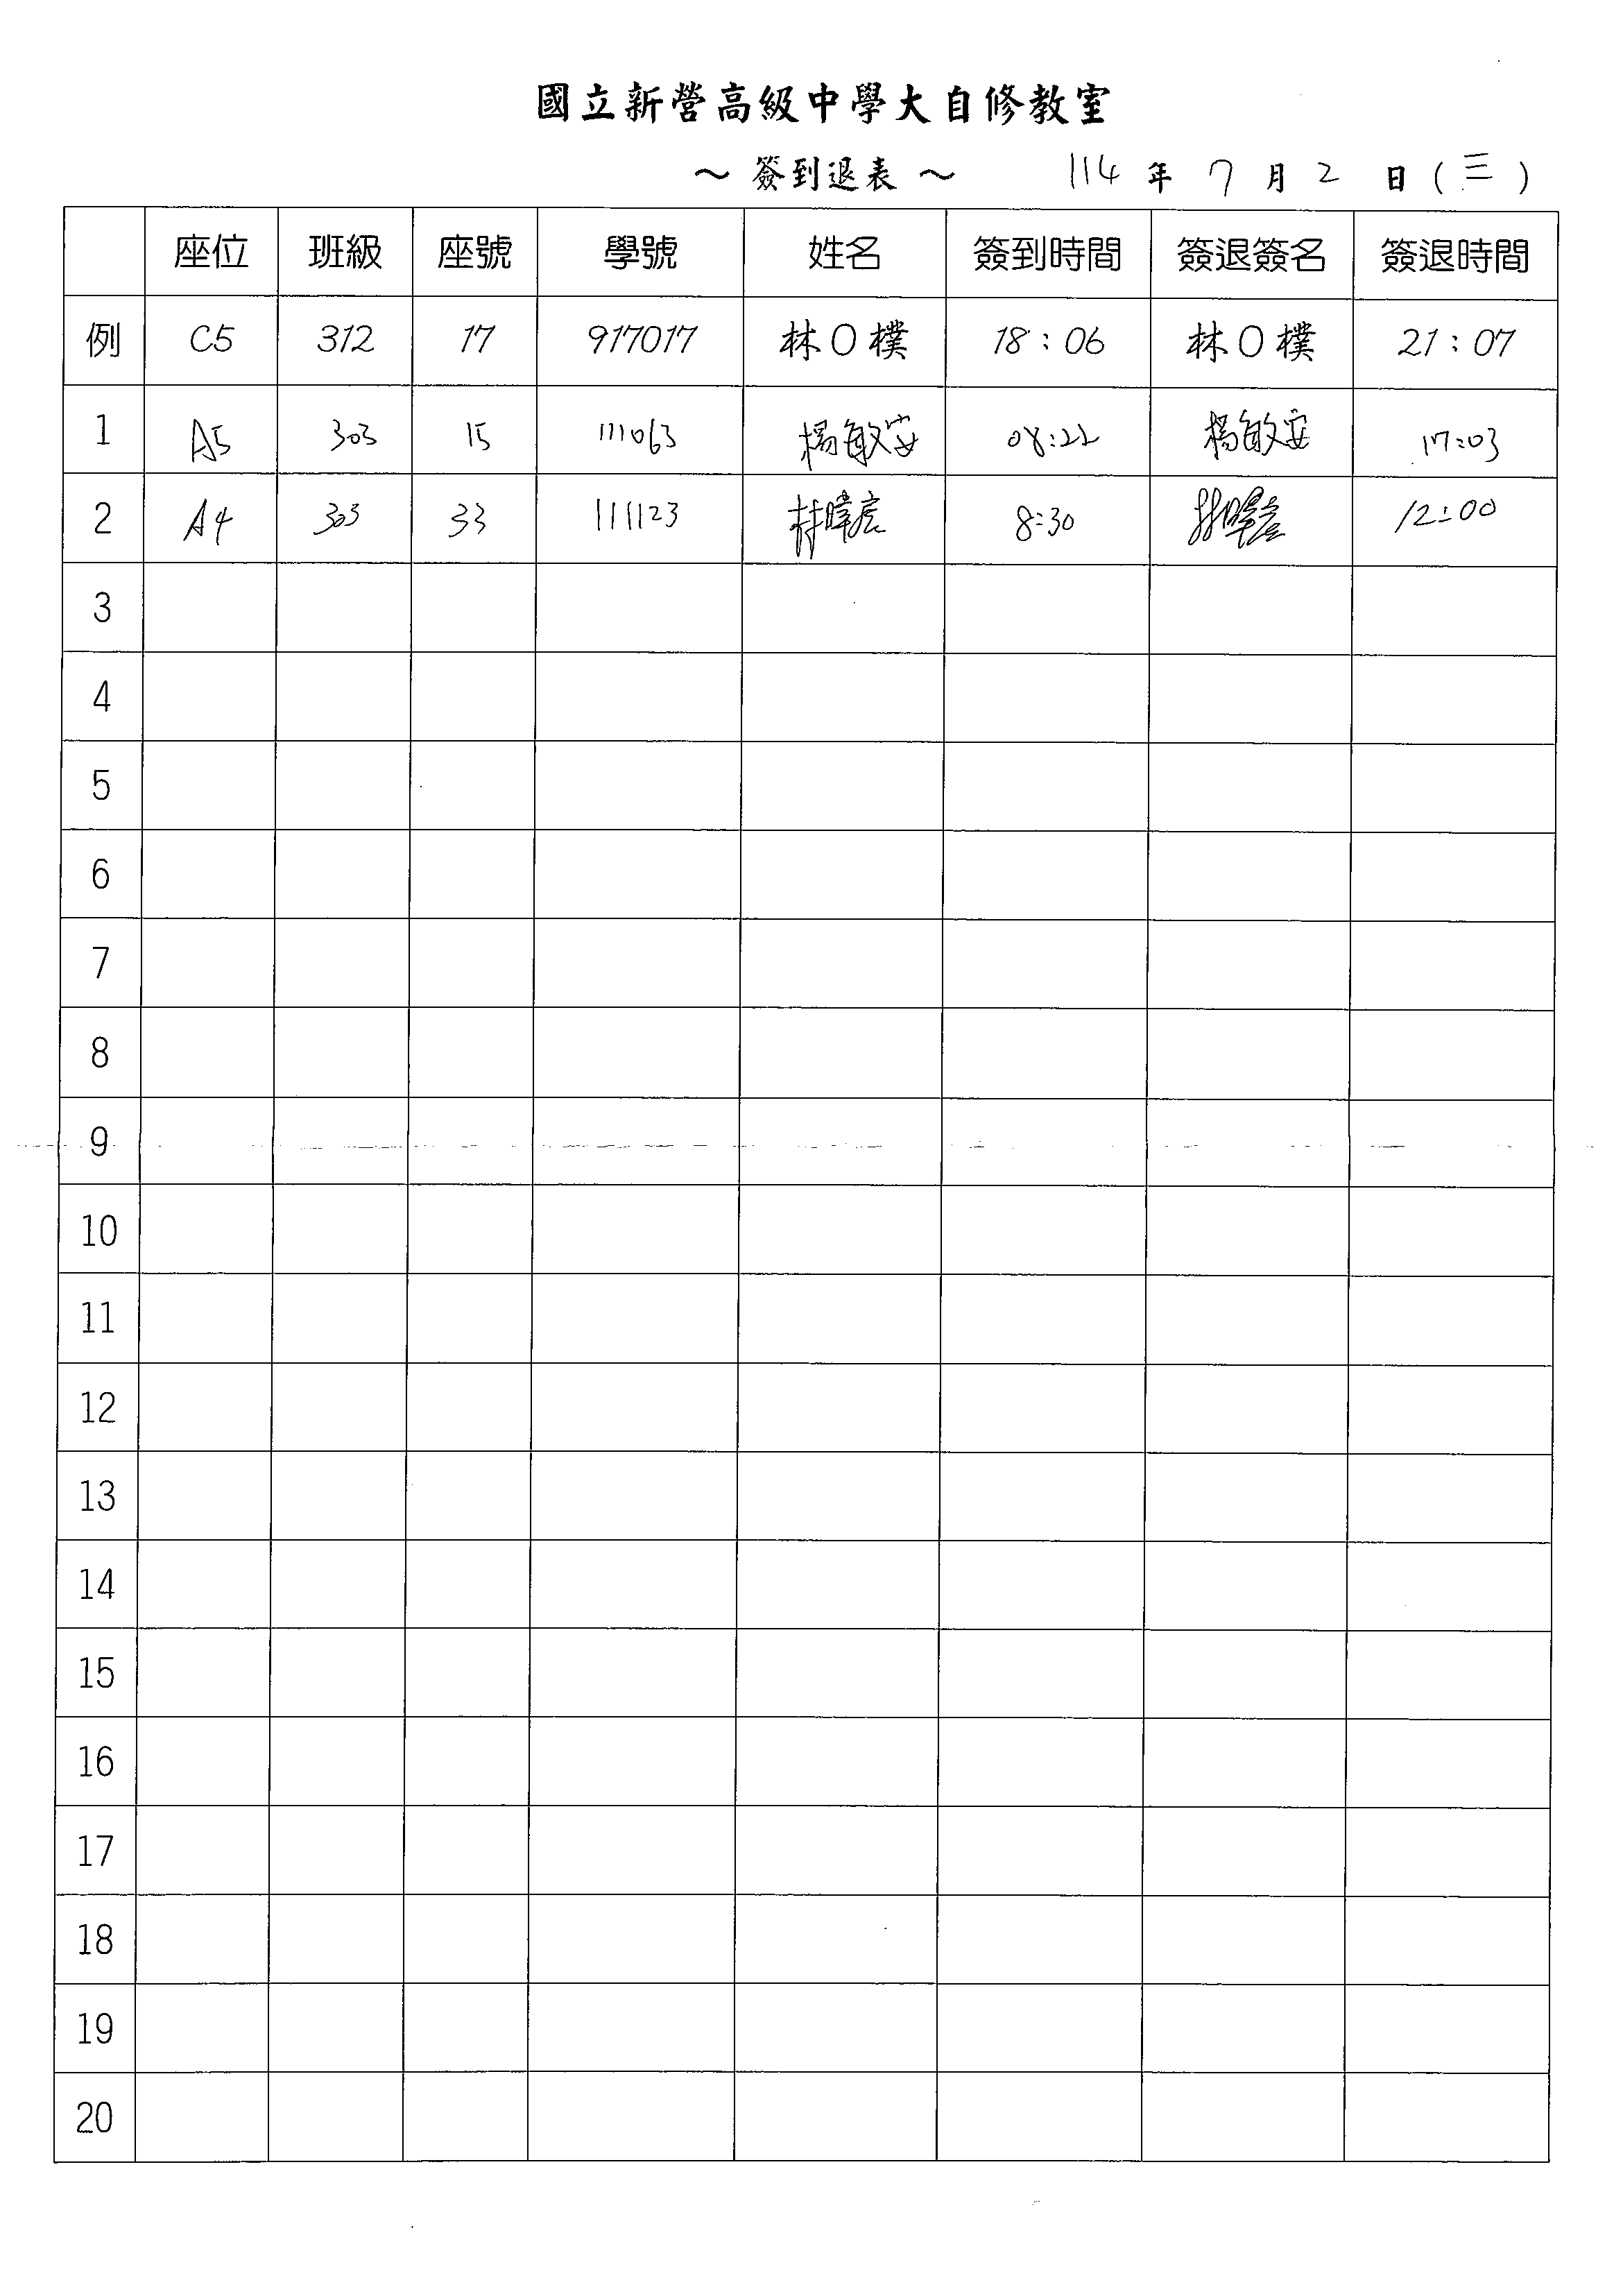 國立新營高級中學大自修教室
～ 簽到退表 ～ 114 年 7 月 2 日 ( 三 )
座位 班級 座號 學號 姓名 簽到時間 簽退簽名 簽退時間
例 C5 312 17 917017 林O樸 18：06 林O樸 21：07
1 A5 303 15 111063 楊敏安 08:22 楊敏安 17:03
2 A4 303 33 111123 林暐宸 8:30 12:00
3
4
5
6
7
8
9
10
11
12
13
14
15
16
17
18
19
20